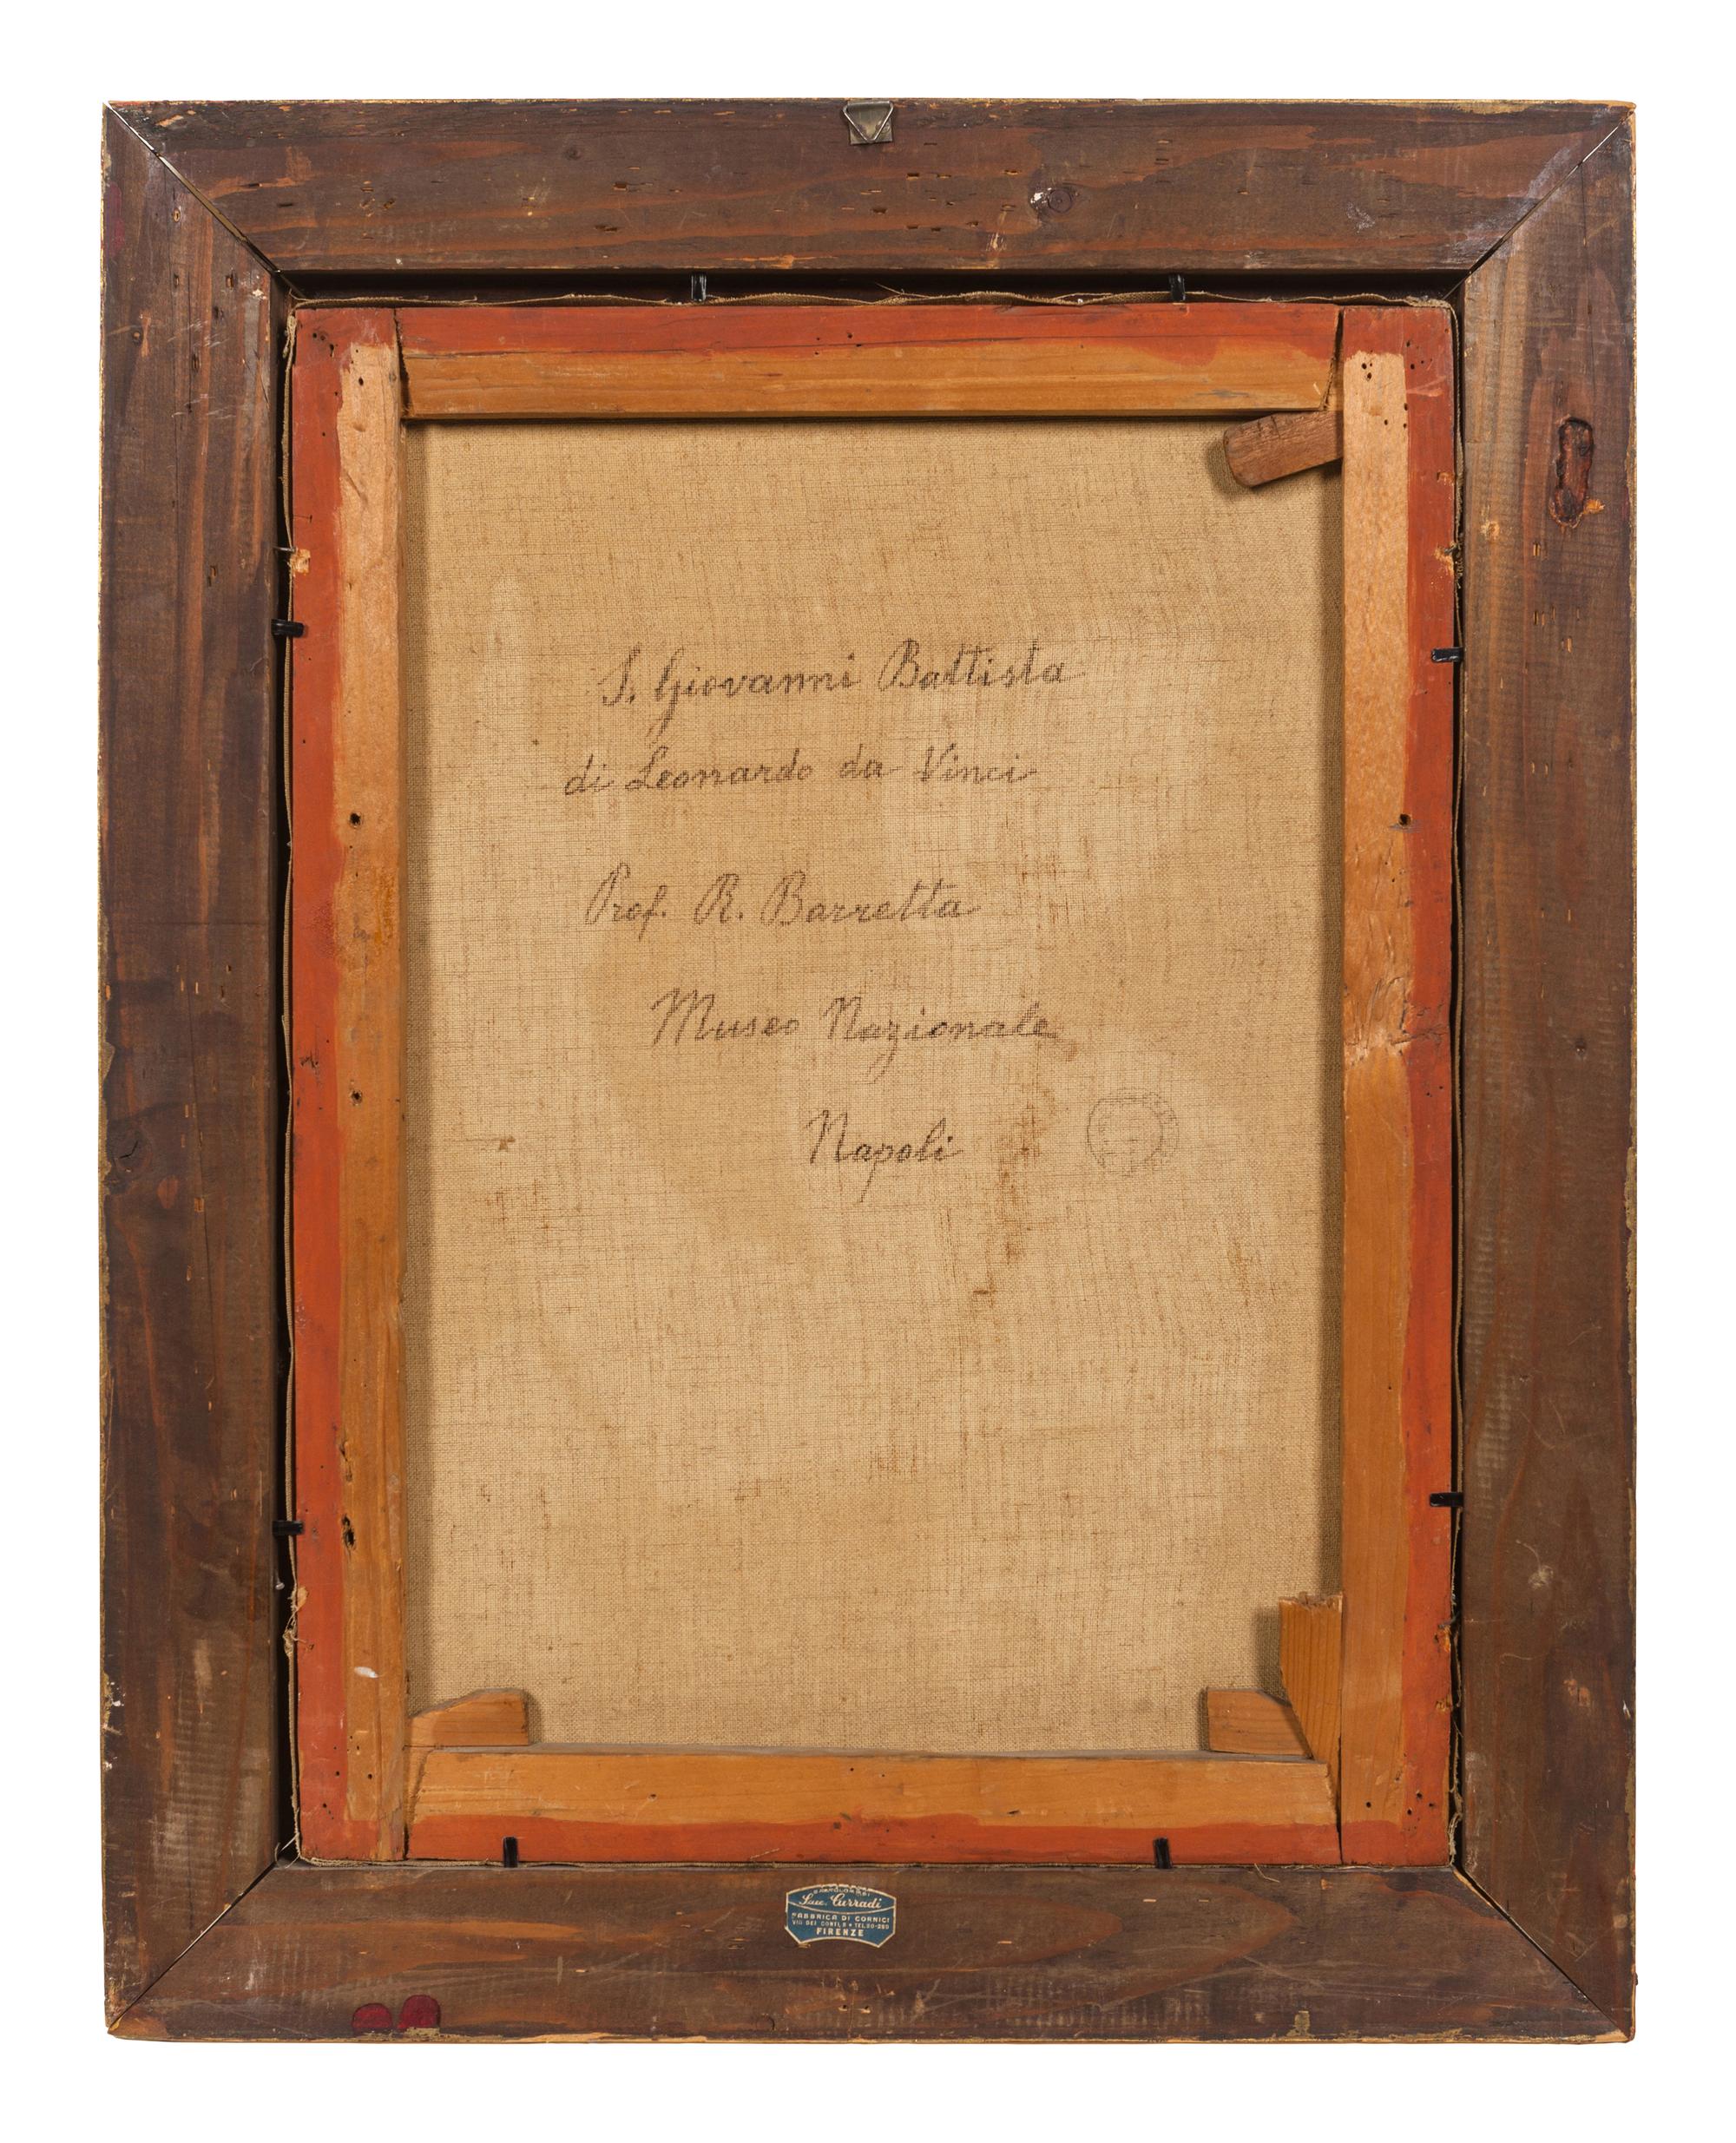 S. Giovanni Battista
di Leonardo da Vinci
Prof. R. Barretta
Museo Nazionale
Napoli
Curradi
FABBRICA DI CORNICI
VIA DEI
FIRENZE